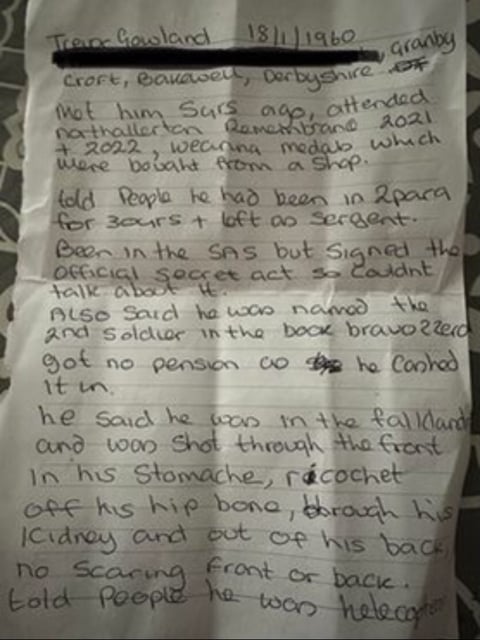 Trevor Gowland 18/1/1960
, Granby
Croft, Bakewell, Derbyshire
Met him 5urs ago, attended
nothallerton RememBrance 2021
+ 2022, wearing medals which
were bought from a shop.
told People he had been in 2para
for 30urs + left as Sergent.
Been in the SAS but Signed the
official secret act so couldnt
talk about it.
Also Said he was named the
2nd soldier in the book bravo2zero
got no pension as he Cashed
it in.
he said he was in the falklands
and was shot through the front
in his Stomache, ricochet
off his hip bone, through his
Kidney and out of his back,
no Scaring front or back.
told People he was